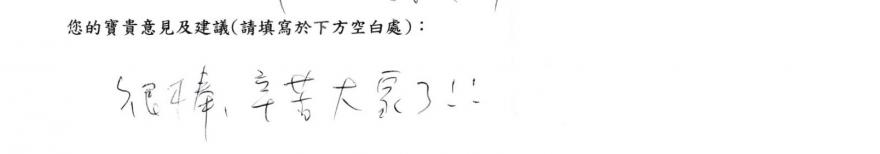 您的寶貴意見及建議(請填寫於下方空白處)：
很棒、辛苦大家了!!